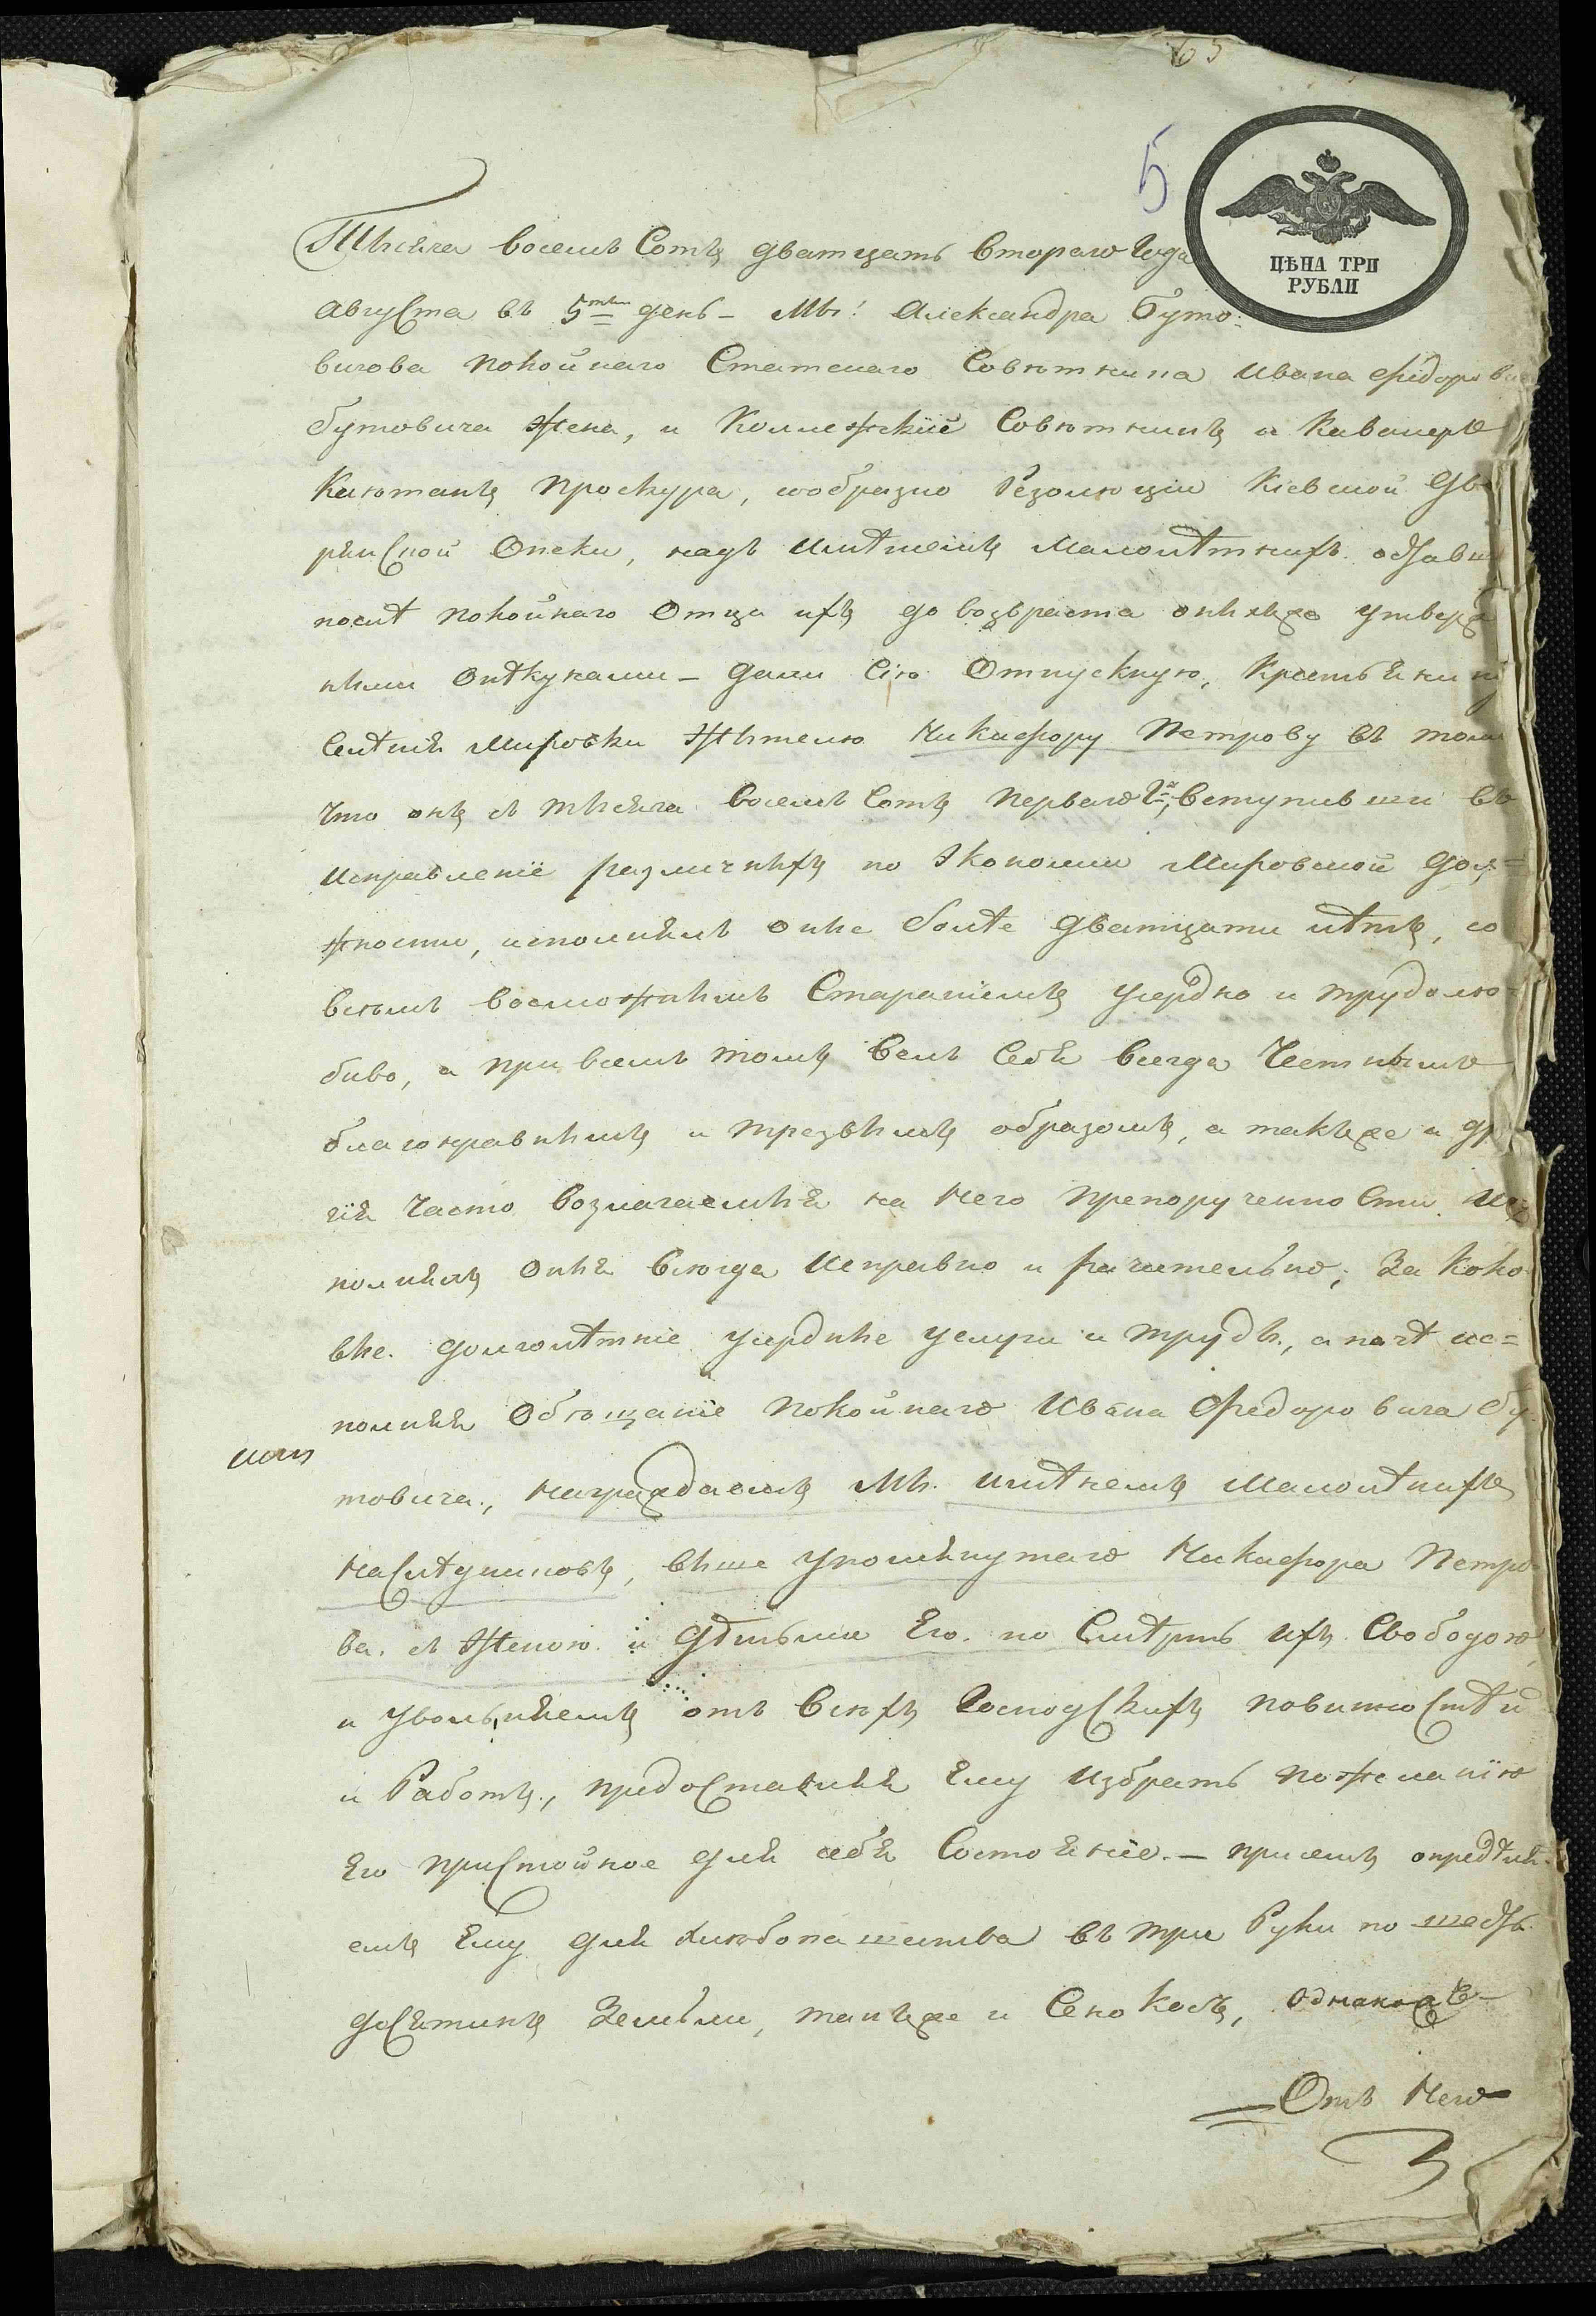 65
5
ЦѢНА ТРИ
РУБЛИ
Тысяча восемъ Сотъ дватцать втораго Года
августа въ 5тый день – Мы: Александра Буто-
вичова покойнаго Статскаго Совѣтника Ивана Федорови
бутовича жена, и Коллежскій Совѣтникъ и Кавалеръ
Каэтанъ Проскура, сообразно Резолюціи Кіевской Дво
рянской Опеки, надъ имѣніемъ малолѣтнихъ оставш
послѣ покойнаго Отца ихъ до возвраста оныхъже утверж
ными опѣкунами – дали Сію Отпускную, Крестьянин
Селѣнія Мировки жытелю Никифору Петрову въ томъ
что онъ съ тысяча восемъ Сотъ перваго Года, вступивши въ
исправленіе различныхъ по Экономіи Мировской дол-
жности, исполнялъ оные болѣе дватцати лѣтъ, со
всѣмъ возможнымъ Стараніемъ усердно и трудолю-
биво, а при всемъ томъ велъ Себя всегда Честнымъ
благонравнымъ и трезвымъ образомъ, а такъже и др
гія часто возлагаемыя на Него препорученности ис-
полнялъ оныя всегда исправно и рачительно; За Како-
вые долголѣтніе усердные услуги и труды, а паче ис-
полняя Обѣщаніе покойнаго Ивана Федоровича Бу-
товича, награждаемъ мы имѣнемъ малолѣтнихъ
наслѣдниковъ, выше упомянутаго Никифора Петро-
ва съ женою и дѣтьми Его по Смѣрть ихъ Свободою
и увольняемъ отъ всѣхъ Господскихъ повинностѣй
и Работъ, предоставляя Ему избрать по желанію
Его пристойное для себя Состояніе. – при семъ опредѣля-
емъ Ему для хлѣбопашества въ три Руки по шесть
десятинъ Земьли, такъже и Сенокосъ, однакожъ
Отъ Него